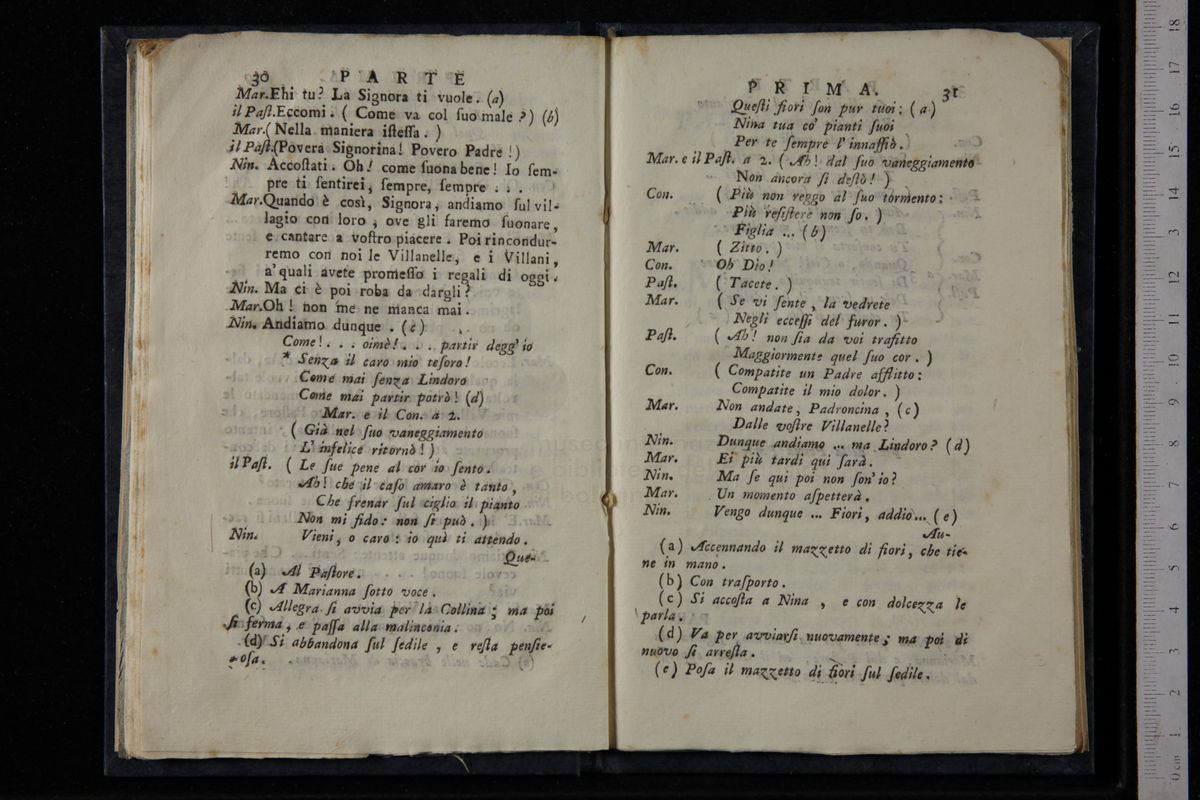 30 PARTE
Mar. Ehi tu? La Signora ti vuole. (a)
il Paſt. Eccomi. ( Come va col ſuo male?) (b)
Mar. (Nella maniera iſteſſa. )
il Paſt. (Povera Signorina! Povero Padre!)
Nin. Accoſtati. Oh! come ſuona bene! Io ſem-
pre ti ſentirei, ſempre, ſempre . . .
Mar. Quando è così, Signora, andiamo ſul vil-
lagio con loro, ove gli faremo ſuonare,
e cantare a voſtro piacere. Poi rincondur-
remo con noi le Villanelle, e i Villani,
a' quali avete promeſſo i regali di oggi.
Nin. Ma ci è poi roba da dargli?
Mar. Oh! non me ne manca mai.
Nin. Andiamo dunque. (c)
Come! . . . oimè! . . . partir degg' io
* Senza il caro mio teſoro!
Come mai ſenza Lindoro
Come mai partir potrò! (d)
Mar. e il Con. a 2.
( Già nel ſuo vaneggiamento
L' infelice ritornò! )
il Paſt. ( Le ſue pene al cor io ſento.
Ah! che il caſo amaro è tanto,
Che frenar ſul ciglio il pianto
Non mi fido: non ſi può. )
Nin. Vieni, o caro: io quì ti attendo.
Que-
(a) Al Paſtore.
(b) A Marianna ſotto voce.
(c) Allegra ſi avvia per la Collina; ma poi
ſi ferma, e paſſa alla malinconia.
(d) Si abbandona ſul ſedile, e reſta penſie-
roſa.
PRIMA. 31
Queſti fiori ſon pur tuoi: (a)
Nina tua co' pianti ſuoi
Per te ſempre l' innaffiò.
Mar. e il Paſt. a 2. ( Ah! dal ſuo vaneggiamento
Non ancora ſi deſtò! )
Con. ( Più non reggo al ſuo tormento:
Più reſiſtere non ſo. )
Figlia ... (b)
Mar. ( Zitto. )
Con. Oh Dio!
Paſt. ( Tacete. )
Mar. ( Se vi ſente, la vedrete
Negli ecceſſi del furor. )
Paſt. ( Ah! non ſia da voi trafitto
Maggiormente quel ſuo cor. )
Con. ( Compatite un Padre afflitto:
Compatite il mio dolor. )
Mar. Non andate, Padroncina, (c)
Dalle voſtre Villanelle?
Nin. Dunque andiamo ... ma Lindoro? (d)
Mar. Ei più tardi qui ſarà.
Nin. Ma ſe qui poi non ſon' io?
Mar. Un momento aſpetterà.
Nin. Vengo dunque ... Fiori, addio... (e)
Au-
(a) Accennando il mazzetto di fiori, che tie-
ne in mano.
(b) Con traſporto.
(c) Si accoſta a Nina, e con dolcezza le
parla.
(d) Va per avviarſi nuovamente; ma poi di
nuovo ſi arreſta.
(e) Poſa il mazzetto di fiori ſul ſedile.
0 cm 1 2 3 4 5 6 7 8 9 10 11 12 13 14 15 16 17 18